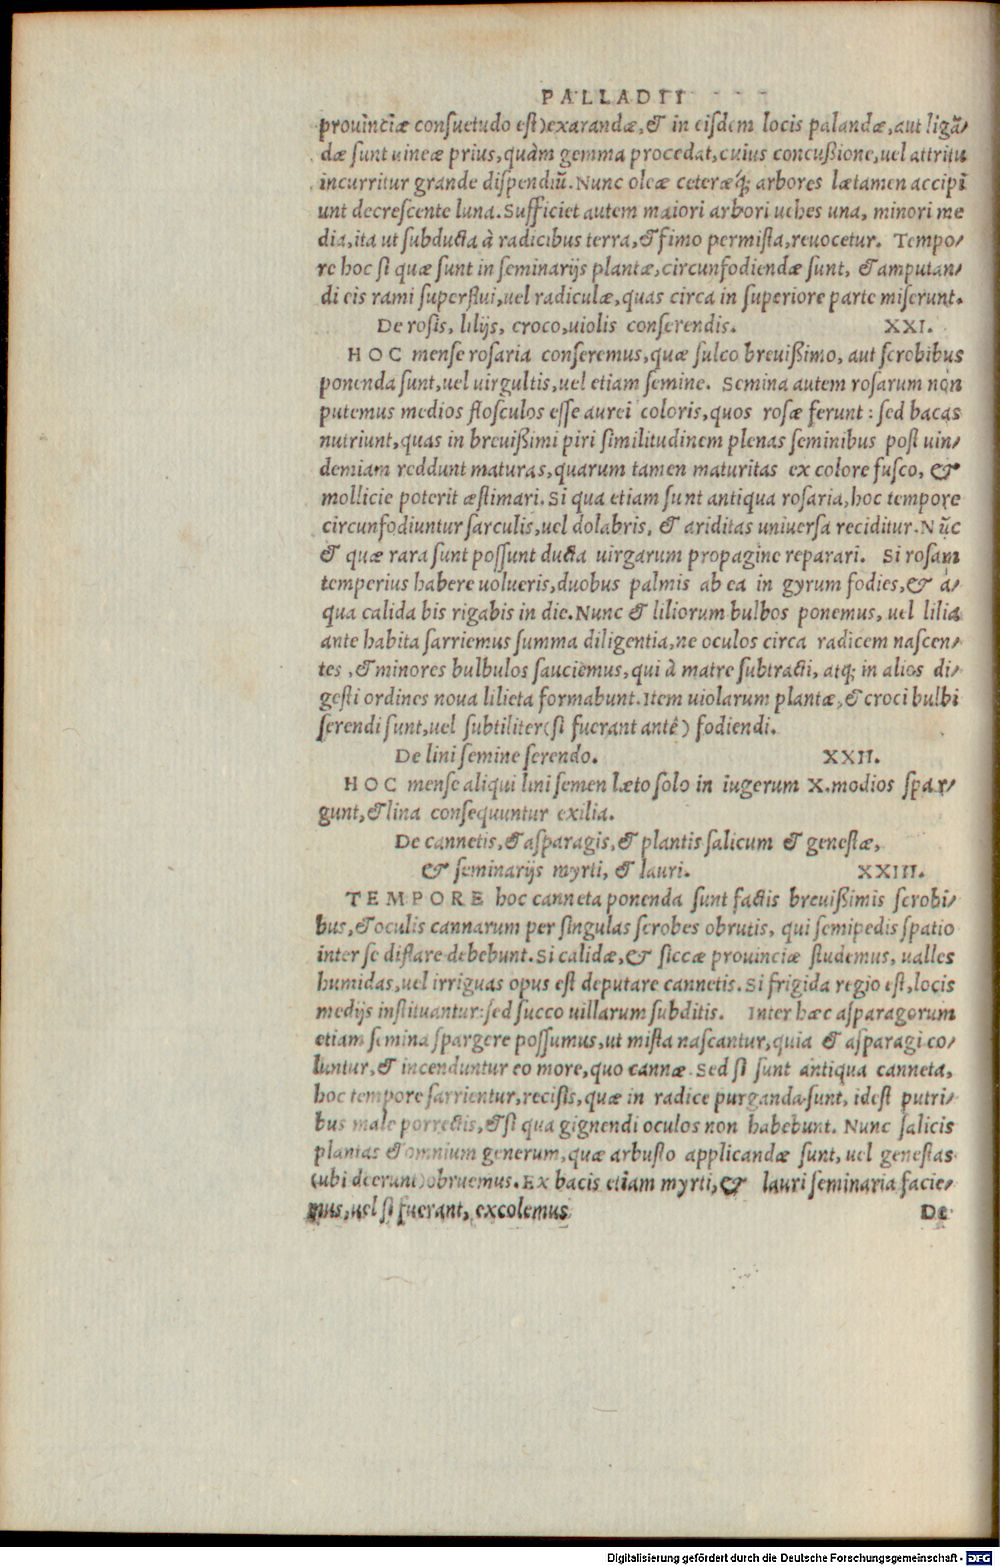 PALLADII
prouinciæ consuetudo est)exarandæ,& in eisdem locis palandæ,aut ligā/
dæ sunt uineæ prius,quàm gemma procedat,cuius concußione,uel attritu
incurritur grande dispendiū.Nunc oleæ ceteræq; arbores lætamen accipi
unt decrescente luna.Sufficiet autem maiori arbori uehes una, minori me
dia,ita ut subducta à radicibus terra,& fimo permista,reuocetur. Tempo/
re hoc si quæ sunt in seminarijs plantæ,circunfodiendæ sunt, & amputan/
di eis rami superflui,uel radiculæ,quas circa in superiore parte miserunt.
De rosis, lilijs, croco,uiolis conserendis. XXI.
HOC mense rosaria conseremus,quæ sulco breuißimo, aut scrobibus
ponenda sunt,uel uirgultis,uel etiam semine. Semina autem rosarum non
putemus medios flosculos esse aurei coloris,quos rosæ ferunt: sed bacas
nutriunt,quas in breuißimi piri similitudinem plenas seminibus post uin/
demiam reddunt maturas,quarum tamen maturitas ex colore fusco, &
mollicie poterit æstimari.Si qua etiam sunt antiqua rosaria,hoc tempore
circunfodiuntur sarculis,uel dolabris, & ariditas uniuersa reciditur.Nūc
& quæ rara sunt possunt ducta uirgarum propagine reparari. Si rosam
temperius habere uolueris,duobus palmis ab ea in gyrum fodies,& a/
qua calida bis rigabis in die.Nunc & liliorum bulbos ponemus, uel lilia
ante habita sarriemus summa diligentia,ne oculos circa radicem nascen/
tes ,& minores bulbulos sauciemus,qui à matre subtracti, atq; in alios di/
gesti ordines noua lilieta formabunt.Item uiolarum plantæ,& croci bulbi
serendi sunt,uel subtiliter(si fuerant antè) fodiendi.
De lini semine serendo. XXII.
HOC mense aliqui lini semen læto solo in iugerum X.modios spar/
gunt,& lina consequuntur exilia.
De cannetis,& asparagis,& plantis salicum & genestæ,
& seminarijs myrti, & lauri. XXIII.
TEMPORE hoc canneta ponenda sunt factis breuißimis scrobi/
bus,& oculis cannarum per singulas scrobes obrutis, qui semipedis spatio
inter se distare debebunt.Si calidæ,& siccæ prouinciæ studemus, ualles
humidas,uel irriguas opus est deputare cannetis.Si frigida regio est,locis
medijs instituantur:sed succo uillarum subditis. Inter hæc asparagorum
etiam semina spargere possumus,ut mista nascantur,quia & asparagi co/
luntur,& incenduntur eo more,quo cannæ.Sed si sunt antiqua canneta,
hoc tempore sarrientur,recisis,quæ in radice purganda sunt, idest putri/
bus male porrectis,& si qua gignendi oculos non habebunt. Nunc salicis
plantas & omnium generum,quæ arbusto applicandæ sunt, uel genestas
(ubi deerunt)obruemus.Ex bacis etiam myrti,& lauri seminaria facie/
mus,uel si fuerant, excolemus De
Digitalisierung gefördert durch die Deutsche Forschungsgemeinschaft - DFG